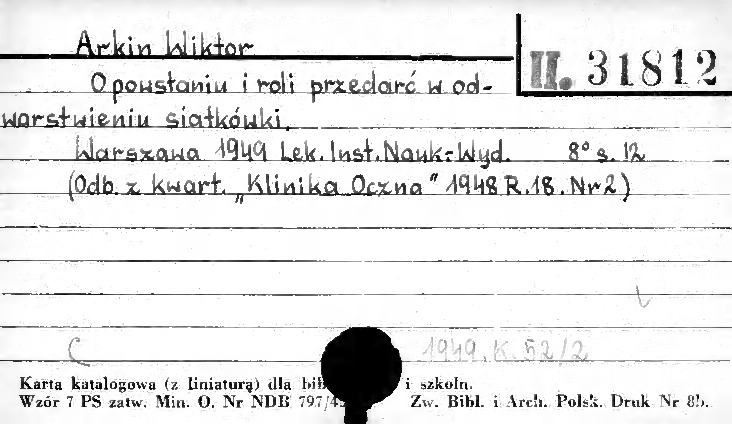 Arkin Wiktor
II. 31812
O powstaniu i roli przedarć w od-
warstwieniu siatkówki.
Warszawa 1949 Lek. Inst. Nauk.-Wyd. 8° s. 12
(Odb. z kwart. „Klinika Oczna" 1948 R. 18. Nr 2)
C 1949. K. 52/2
Karta katalogowa (z liniaturą) dla i szkoln.
Wzór 7 PS zatw. Min. O. Nr NDB Zw. Bibl. i Arch. Polsk. Druk Nr 8b.